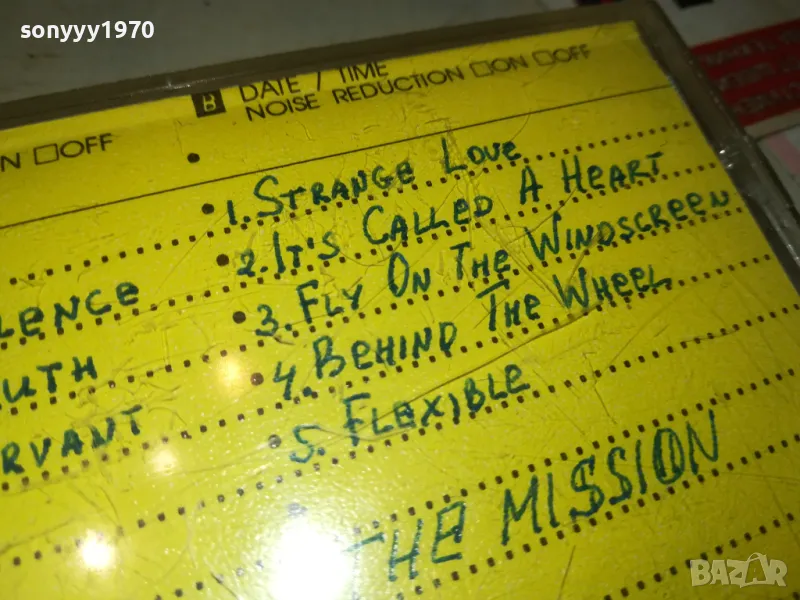 sonyyy1970
B DATE / TIME
NOISE REDUCTION □ON □OFF
N □OFF
1. STRANGE LOVE
2. IT'S CALLED A HEART
3. FLY ON THE WINDSCREEN
LENCE
4. BEHIND THE WHEEL
UTH
5. FLEXIBLE
RVANT
THE MISSION
BAZAR